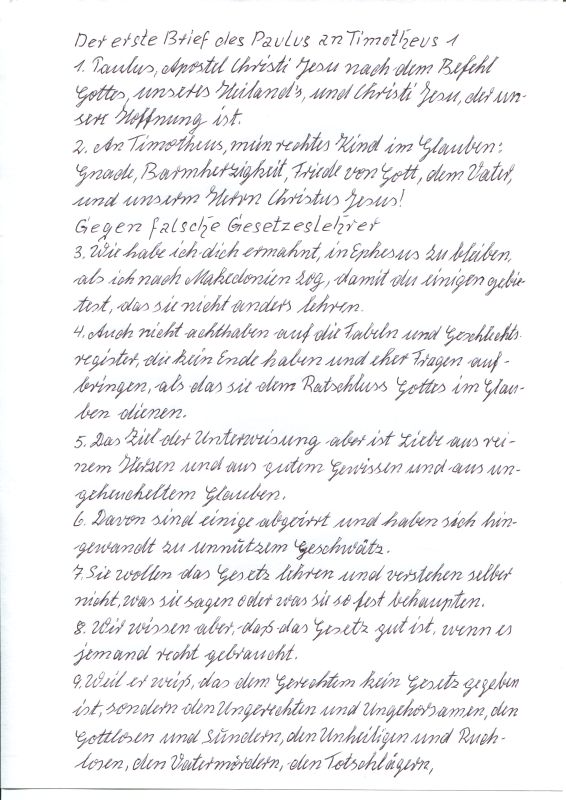 Der erste Brief des Paulus an Timotheus 1
1. Paulus, Apostel Christi Jesu nach dem Befehl
Gottes, unseres Heiland's, und Christi Jesu, der un-
sere Hoffnung ist.
2. An Timotheus, mein rechtes Kind im Glauben:
Gnade, Barmherzigkeit, Friede von Gott, dem Vater,
und unserm Herrn Christus Jesus!
Gegen falsche Gesetzeslehrer
3. Wie habe ich dich ermahnt, in Ephesus zu bleiben,
als ich nach Makedonien zog, damit du einigen gebie-
test, das sie nicht anders lehren.
4. Auch nicht achthaben auf die Fabeln und Geschlechts-
register, die kein Ende haben und eher Fragen auf-
bringen, als das sie dem Ratschluss Gottes im Glau-
ben dienen.
5. Das Ziel der Unterweisung aber ist Liebe aus rei-
nem Herzen und aus gutem Gewissen und aus un-
geheucheltem Glauben.
6. Davon sind einige abgeirrt und haben sich hin-
gewandt zu unnützem Geschwätz.
7. Sie wollen das Gesetz lehren und verstehen selber
nicht, was sie sagen oder was sie so fest behaupten.
8. Wir wissen aber, daß das Gesetz gut ist, wenn es
jemand recht gebraucht.
9. Weil er weiß, das dem Gerechtem kein Gesetz gegeben
ist, sondern den Ungerechten und Ungehorsamen, den
Gottlosen und Sündern, den Unheiligen und Ruch-
losen, den Vatermördern, den Totschlägern,